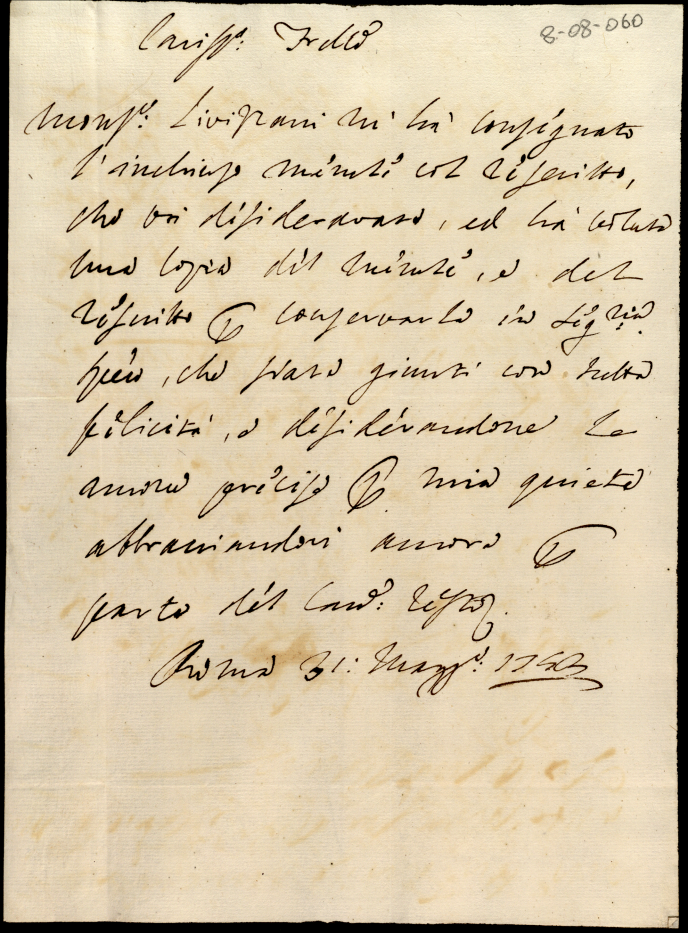 8-08-060
Cariss.mo Frello
Mons.r Livizzani mi hà consegnato
l'inchiuso memle col réscritto,
che voi désideravate, ed hà voluto
una copia dél memle, e del
réscritto per conservarla in Segria
spero, che siate giunti con tutta
félicità, e désidérandone le
ancora precise per mia quiete
abbracciandovi ancora per
parte dél Card: resto
Roma 31: Magg.o: 1753